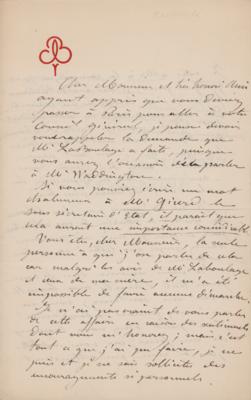 Cher Monsieur et très honoré Ami
ayant appris que vous devez
passer à Paris pour aller à votre
Conseil Général, je pense devoir
vous rappeler la demande que
Mr Laboulaye a faite, puisque
vous aurez l'occasion de parler
à Mr Waddington.
Si vous pouviez écrire un mot
à Mr
sous secrétaire d'État, il paraît que
cela aurait une importance considérable
Vous êtes, cher Monsieur, la seule
personne à qui j'ose parler de cela
car malgré les avis de Mr Laboulaye
et ceux de ma mère, il m'a été
impossible de faire aucune démarche.
Je n'ai pas
de cette affaire en raison des sentiments
dont vous m'honorez; mais c'est
tout ce que j'ai pu faire, je ne
puis et je ne sais solliciter des
encouragements si personnels